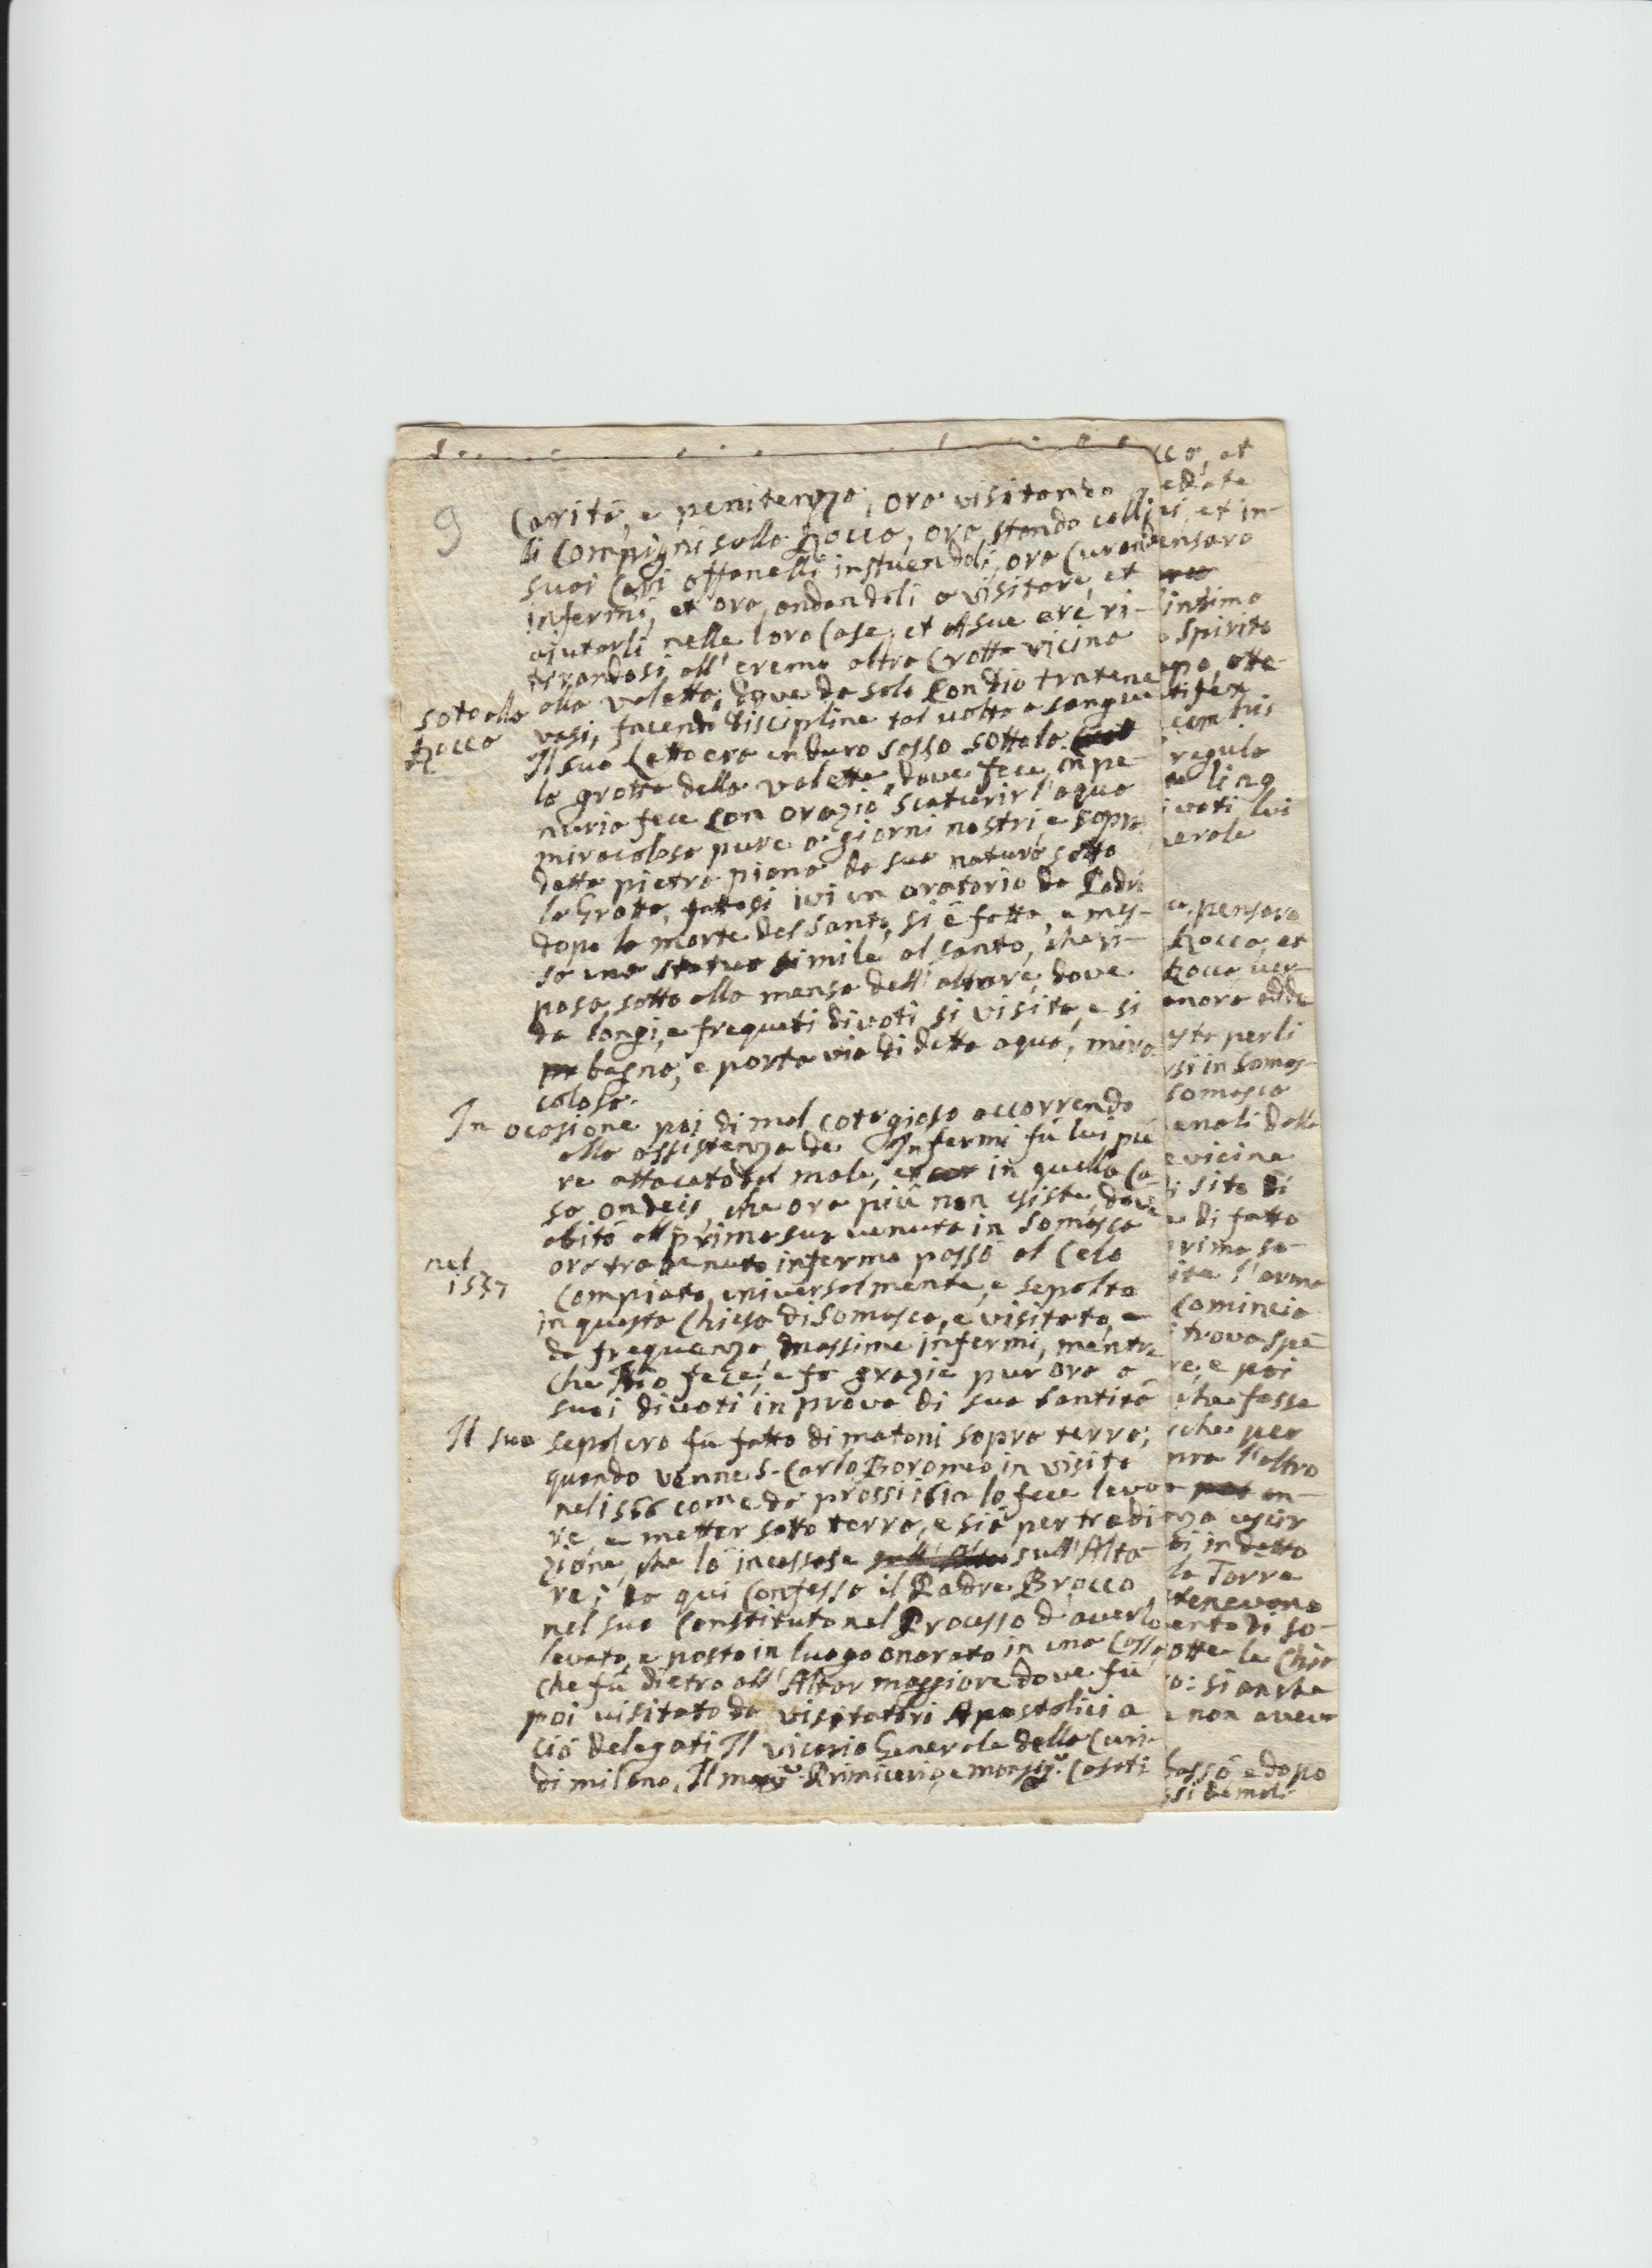 9
Carità, e penitenza, ora visitando
li Compigni sulla Rocca, ora stando colli
suoi Cari offanelli instuendoli, ora Curand
infermi, et ora andandoli a visitare, et
aiutarli nelle loro Case, et A sue ore ri-
tirandosi all'eremo altra Crotta vicina
alla valetta, dove da solo Con dio tratene
vasi, facendo discipline tal uolta a sangue
sotto alla
Rocca
Il suo Letto era un duro sasso sotto la
la grotta della valetta, dove fece, in pe-
nuria fece Con orazio scaturir l'aqua
miracolosa pure a giorni nostri, e sopra
detta pietra piana da sua natura sotto
la Grotta, fattosi ivi un oratorio da Padri
dopo la morte del santo, si è fatta, e mes-
sa una statua simile al santo, che ri-
posa, sotto alla mensa dell'altare, dove
da longi, e frequeti divoti si visita, e si
bagna, e porta via di detta aqua, mira-
colosa.
In ocasione poi di mal cotagioso accorrendo
alla assistenza de Infermi fù lui pu
re attacato dal male, et in quella Ca-
sa ondeis, che ora più non esiste, dove
abitò all prima sua venuta in Somasca
ora tratenuto infermo passò al Celo
nel
1537
Compianto universalmente, e sepolto
in questa Chiesa di Somasca, e visitato, e
da frequenza massime infermi, mentre
che Dio fece, e fa grazie pur ora a
suoi divoti in prova di sua santità
Il suo sepolcro fù fatto di matoni sopra terra;
quando venne S. Carlo Boromeo in visita
nel 1566 come da prossi lo fece leva
re, e metter sotto terra, e sià per tradi
zione, che lo incessase sull'Alta-
re; qui Confessa il Padre Brocco
nel suo Constituto nel Processo d'averlo
levato, e posto in luogo onorato in una Cassa
che fù dietro all'Altar maggiore dove fù
poi visitato da visitatori Apostolici a
ciò delegati Il vicario Generale della Curi-
di milano, Il Primicerio, e Casati
cco, et
edate
et in-
ensara
intimo
spirito
otte-
tifex
cum his
regula
ling
ivoti lui
erale
pensava
Rocca, et
Rocca ver-
onora adda
per li
si in Somas-
somasca
dalla
e vicina
sito di
di fatto
prima sa-
l'arma
Comincia
trova spe
re, e poi
che fosse
che per
nra l'altra
an-
nza
in detto
la Torre
tenevano
ento di so-
otte la Chie
si an cha
non aveva
passò e dopo